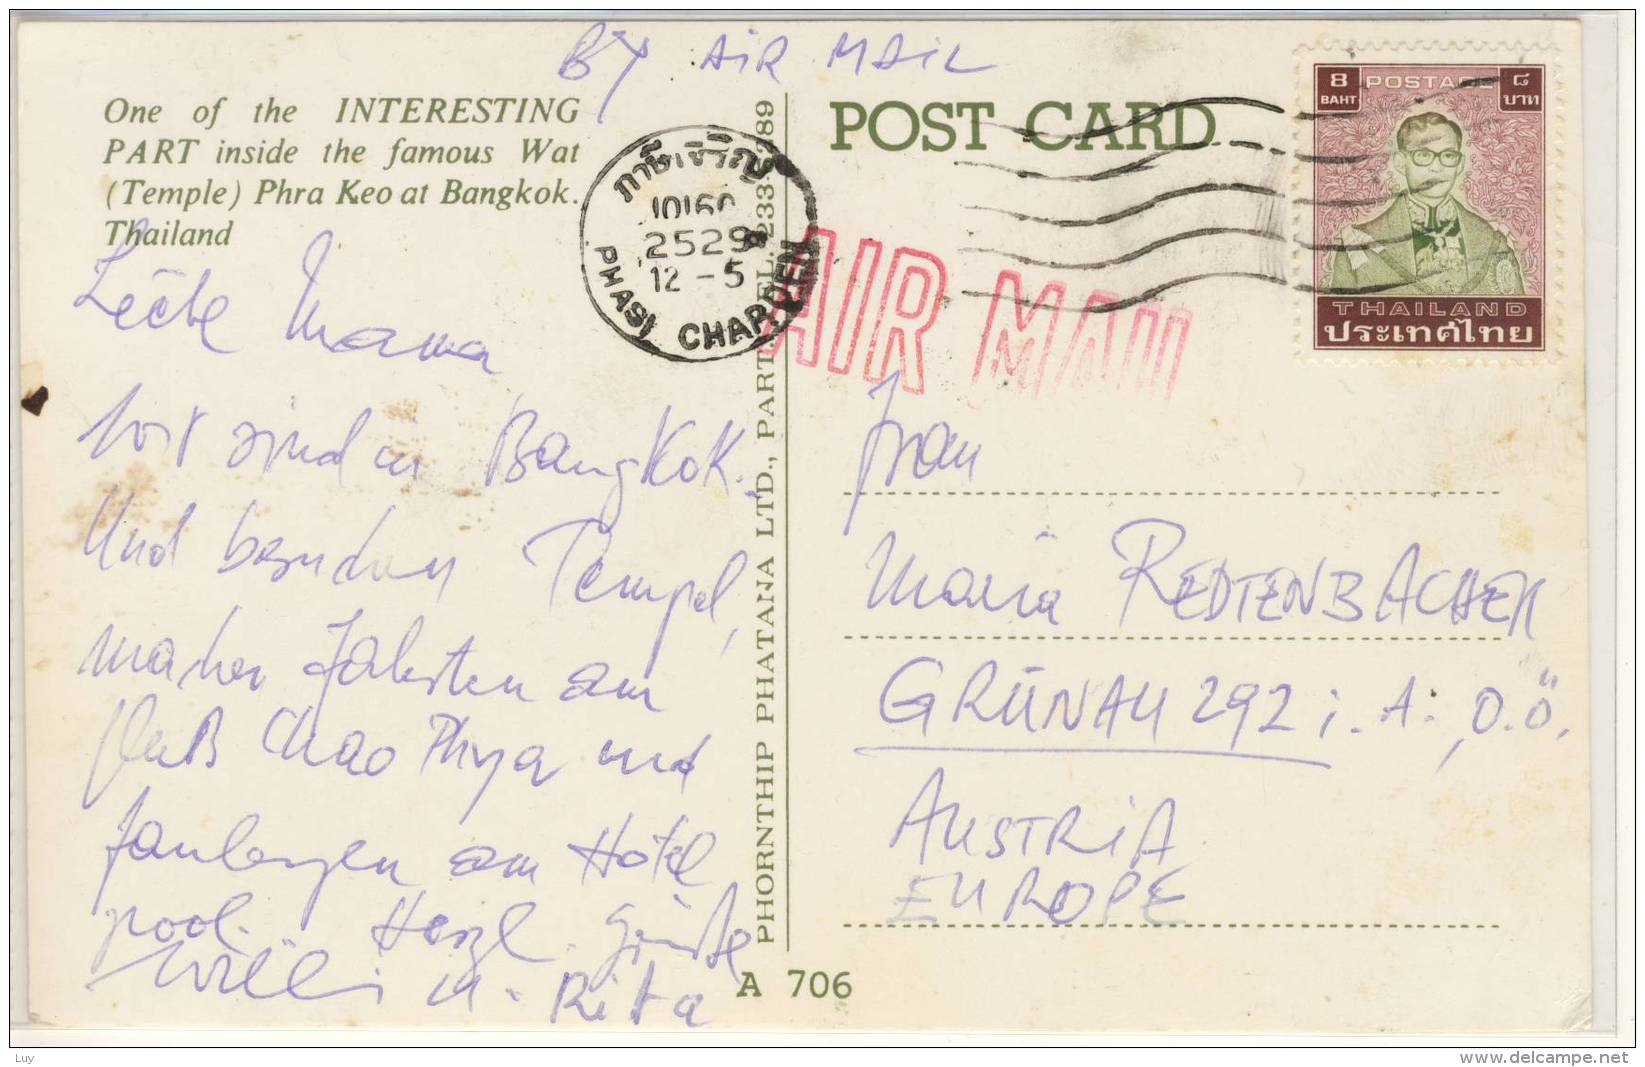 BY AIR MAIL
One of the INTERESTING
PART inside the famous Wat
(Temple) Phra Keo at Bangkok.
Thailand
Liebe Mama
Wir sind in Bangkok.
Und besuchen Tempel,
machen Fahrten am
Fluß Chao Phya und
faulenzen am Hotel
pool. Herzl. Grüße
Willi u. Rita
PHORNTHIP PHATANA LTD., PART. TEL. 233-9289
A 706
POST CARD
ภาษีเจริญ
2529
12-5
PHASI CHAROEN
AIR MAIL
8 POSTAGE ๘
BAHT บาท
THAILAND
ประเทศไทย
Frau
Maria REDTENBACHER
GRÜNAU 292 i. A., O.Ö.
AUSTRIA
EUROPE
Luy
www.delcampe.net